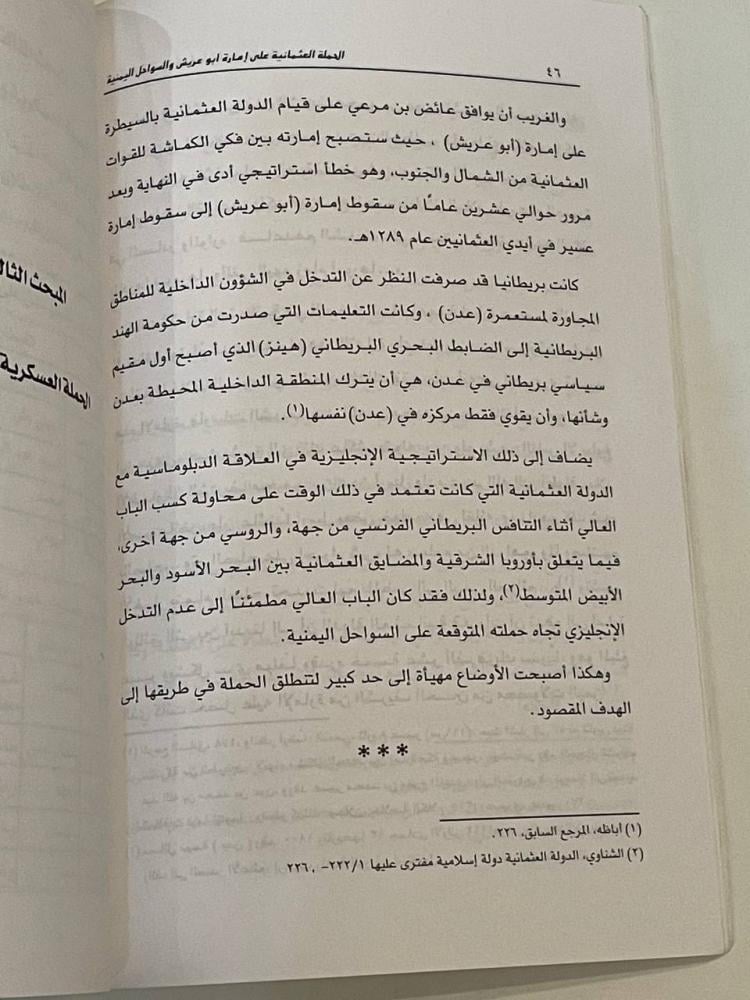 الحملة العثمانية على إمارة أبو عريش والسواحل اليمنية
٤٦
والغريب أن يوافق عائض بن مرعي على قيام الدولة العثمانية بالسيطرة
على إمارة (أبو عريش) ، حيث ستصبح إمارته بين فكي الكماشة للقوات
العثمانية من الشمال والجنوب، وهو خطأ استراتيجي أدى في النهاية وبعد
مرور حوالي عشرين عامًا من سقوط إمارة (أبو عريش) إلى سقوط إمارة
عسير في أيدي العثمانيين عام ١٢٨٩هـ.
كانت بريطانيا قد صرفت النظر عن التدخل في الشؤون الداخلية للمناطق
المجاورة لمستعمرة (عدن) ، وكانت التعليمات التي صدرت من حكومة الهند
البريطانية إلى الضابط البحري البريطاني (هينز) الذي أصبح أول مقيم
سياسي بريطاني في عدن، هي أن يترك المنطقة الداخلية المحيطة بعدن
وشأنها، وأن يقوي فقط مركزه في (عدن) نفسها(١).
يضاف إلى ذلك الاستراتيجية الإنجليزية في العلاقة الدبلوماسية مع
الدولة العثمانية التي كانت تعتمد في ذلك الوقت على محاولة كسب الباب
العالي أثناء التنافس البريطاني الفرنسي من جهة، والروسي من جهة أخرى،
فيما يتعلق بأوروبا الشرقية والمضايق العثمانية بين البحر الأسود والبحر
الأبيض المتوسط(٢)، ولذلك فقد كان الباب العالي مطمئنًا إلى عدم التدخل
الإنجليزي تجاه حملته المتوقعة على السواحل اليمنية.
وهكذا أصبحت الأوضاع مهيأة إلى حد كبير لتنطلق الحملة في طريقها إلى
الهدف المقصود.
***
(١) أباظه، المرجع السابق، ٢٢٦.
(٢) الشناوي، الدولة العثمانية دولة إسلامية مفترى عليها ١/ ٢٢٢– ٢٢٦.
المبحث
الحملة العسكرية